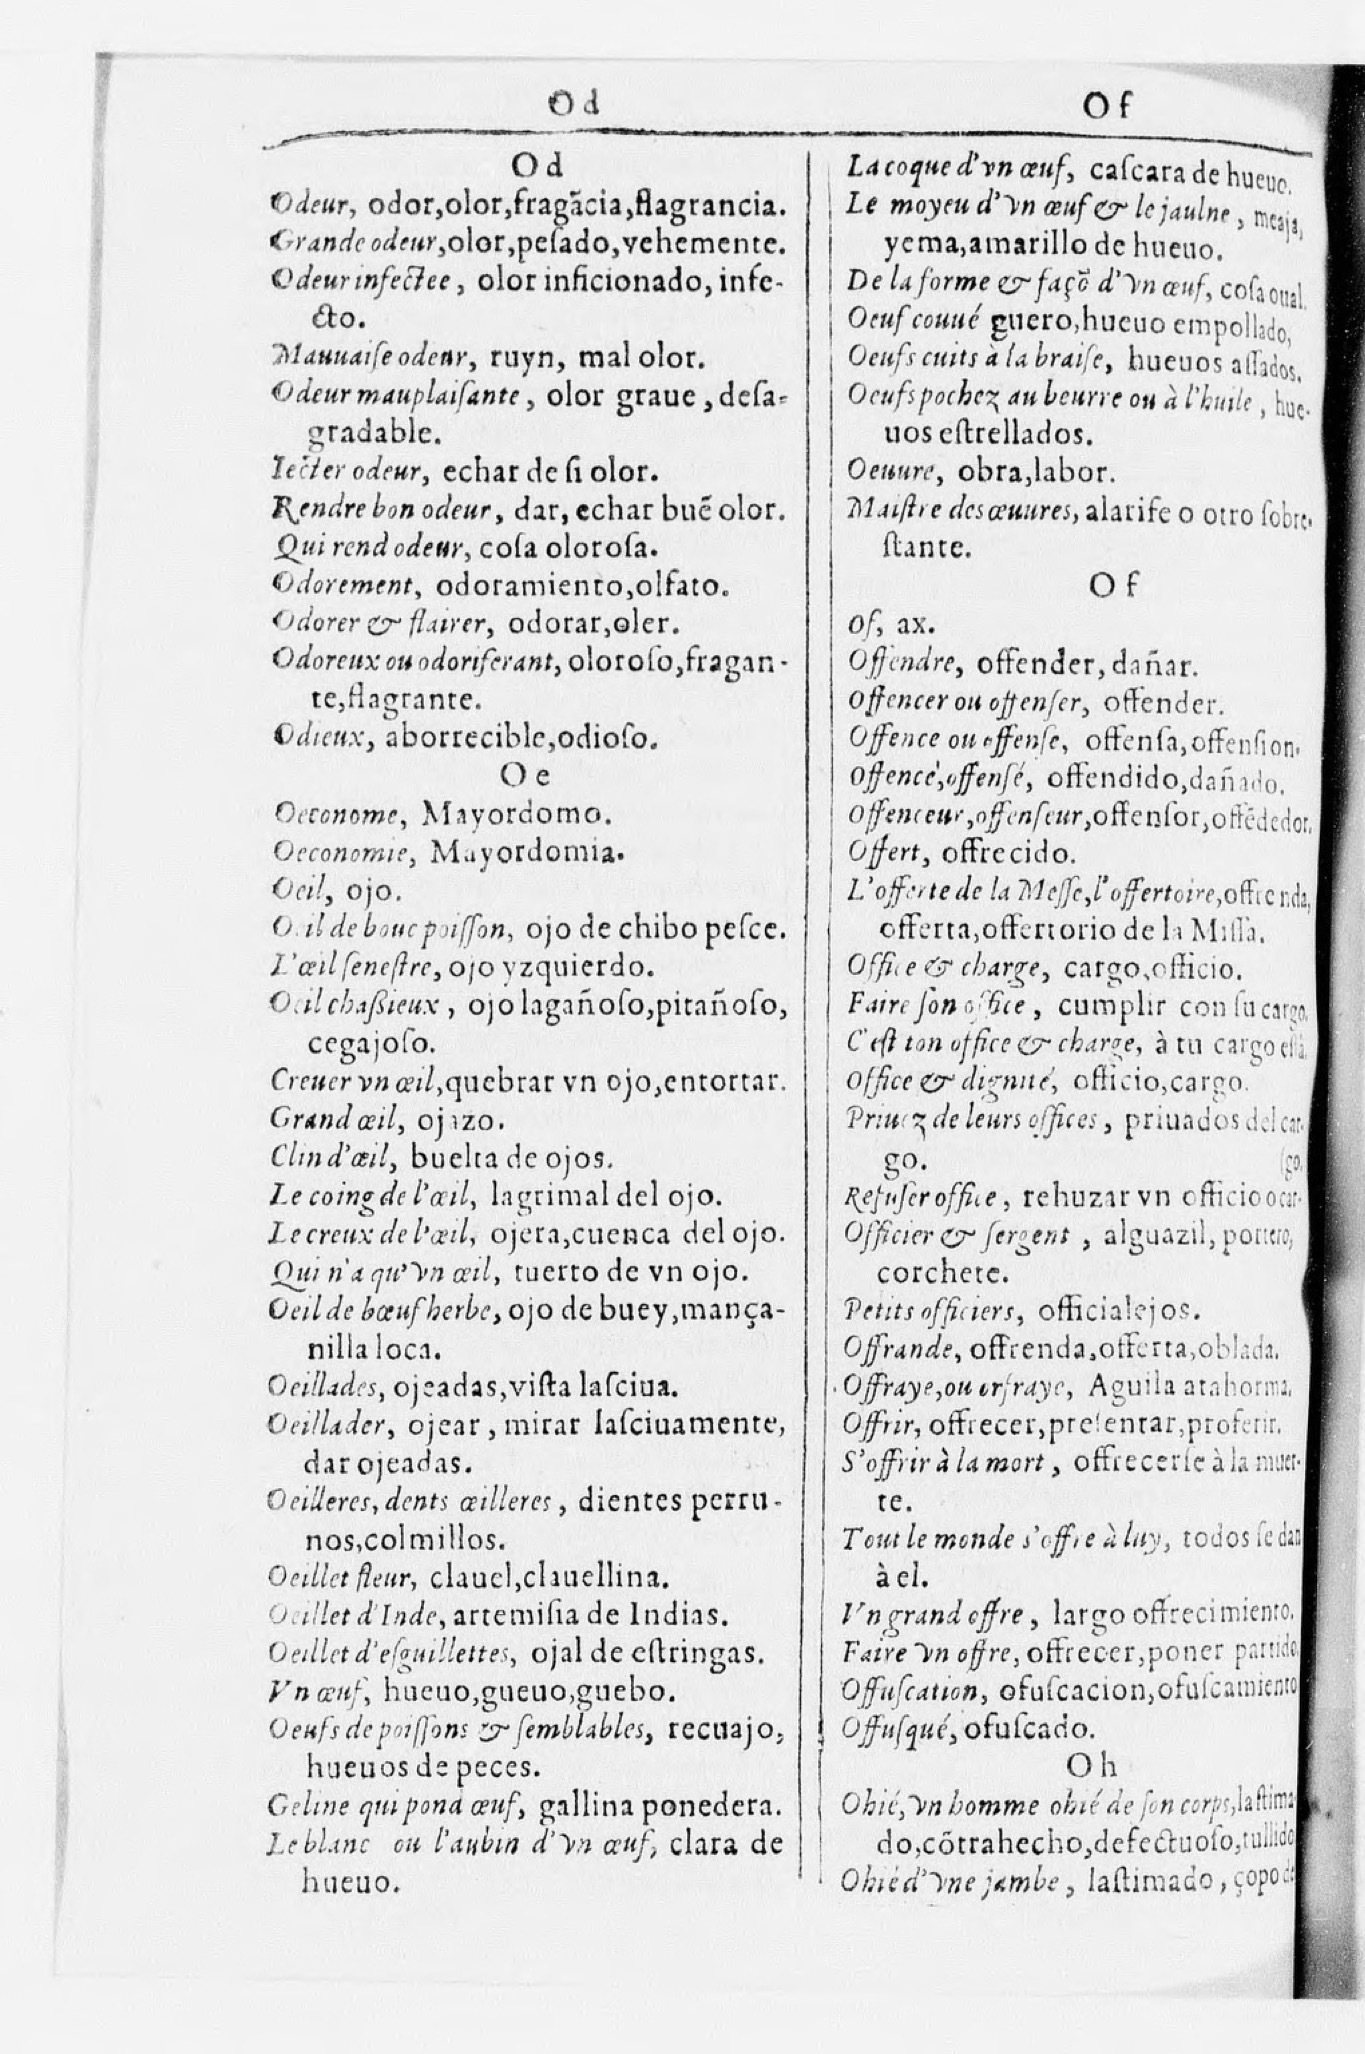 Od
Of
Od
Odeur, odor,olor,fragãcia,flagrancia.
Grande odeur,olor,peſado,vehemente.
Odeur infectee, olor inficionado, infe-
cto.
Mauuaiſe odeur, ruyn, mal olor.
Odeur mauplaiſante, olor graue, deſa-
gradable.
Iecter odeur, echar de ſi olor.
Rendre bon odeur, dar, echar buẽ olor.
Qui rend odeur, coſa oloroſa.
Odorement, odoramiento,olfato.
Odorer & flairer, odorar,oler.
Odoreux ou odoriferant, oloroſo,fragan-
te,flagrante.
Odieux, aborrecible,odioſo.
Oe
Oeconome, Mayordomo.
Oeconomie, Mayordomia.
Oeil, ojo.
Oeil de bouc poiſſon, ojo de chibo peſce.
L'œil ſeneſtre, ojo yzquierdo.
Oeil chaſsieux, ojo lagañoſo,pitañoſo,
cegajoſo.
Creuer vn œil,quebrar vn ojo,entortar.
Grand œil, ojazo.
Clin d'œil, buelta de ojos.
Le coing de l'œil, lagrimal del ojo.
Le creux de l'œil, ojera,cuenca del ojo.
Qui n'a qu'vn œil, tuerto de vn ojo.
Oeil de bœuf herbe, ojo de buey,mança-
nilla loca.
Oeillades, ojeadas,viſta laſciua.
Oeillader, ojear, mirar laſciuamente,
dar ojeadas.
Oeilleres, dents œilleres, dientes perru-
nos,colmillos.
Oeillet fleur, clauel,clauellina.
Oeillet d'Inde, artemiſia de Indias.
Oeillet d'eſguillettes, ojal de eſtringas.
Vn œuf, hueuo,gueuo,guebo.
Oeufs de poiſſons & ſemblables, recuajo,
hueuos de peces.
Geline qui pond œuf, gallina ponedera.
Le blanc ou l'aubin d'vn œuf, clara de
hueuo.
La coque d'vn œuf, caſcara de hueuo.
Le moyeu d'vn œuf & le jaulne, meaja,
yema,amarillo de hueuo.
De la forme & façõ d'vn œuf, coſa oual.
Oeuf couué guero,hueuo empollado,
Oeufs cuits à la braiſe, hueuos aſſados.
Oeufs pochez au beurre ou à l'huile, hue-
uos eſtrellados.
Oeuure, obra,labor.
Maiſtre des œuures, alarife o otro ſobre-
ſtante.
Of
Of, ax.
Offendre, offender, dañar.
Offencer ou offenſer, offender.
Offence ou offenſe, offenſa,offenſion.
Offencé,offenſé, offendido,dañado.
Offenceur,offenſeur,offenſor,offẽdedor.
Offert, offrecido.
L'offerte de la Meſſe,l'offertoire,offrenda,
offerta,offertorio de la Miſſa.
Office & charge, cargo,officio.
Faire ſon office, cumplir con ſu cargo.
C'eſt ton office & charge, à tu cargo eſtà.
Office & dignité, officio,cargo.
Priuez de leurs offices, priuados del car-
go. (go.
Refuſer office, rehuzar vn officio o car-
Officier & ſergent, alguazil, portero,
corchete.
Petits officiers, officialejos.
Offrande, offrenda,offerta,oblada.
Offraye,ou orfraye, Aguila atahorma.
Offrir, offrecer,preſentar,proferir.
S'offrir à la mort, offrecerſe à la muer-
te.
Tout le monde s'offre à luy, todos ſe dan
à el.
Vn grand offre, largo offrecimiento.
Faire vn offre, offrecer,poner partido
Offuſcation, ofuſcacion,ofuſcamiento
Offuſqué, ofuſcado.
Oh
Ohié, vn homme ohié de ſon corps,laſtima-
do,cõtrahecho,defectuoſo,tullido
Ohié d'vne jambe, laſtimado, çopo de